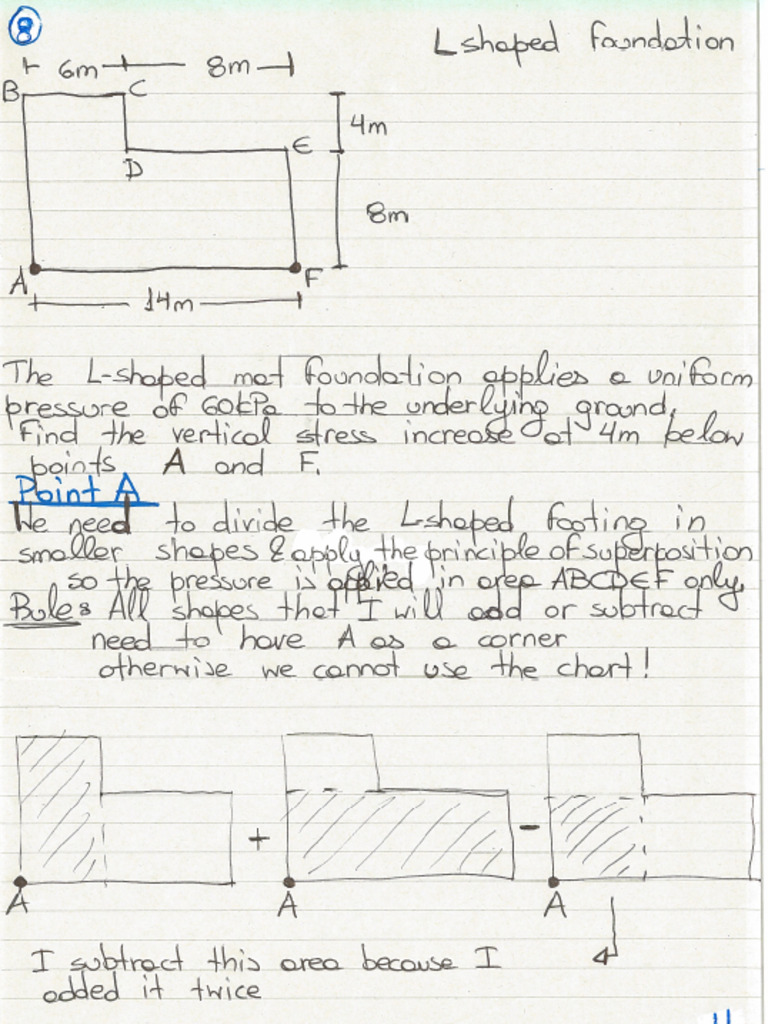 8
L shaped foundation
6m 8m
B C
4m
E
D
8m
A F
14m
The L-shaped mat foundation applies a uniform
pressure of 60kPa to the underlying ground.
Find the vertical stress increase at 4m below
points A and F.
Point A
We need to divide the L-shaped footing in
smaller shapes & apply the principle of superposition
so the pressure is applied in area ABCDEF only.
Rule: All shapes that I will add or subtract
need to have A as a corner
otherwise we cannot use the chart!
+ -
A A A
I subtract this area because I
added it twice